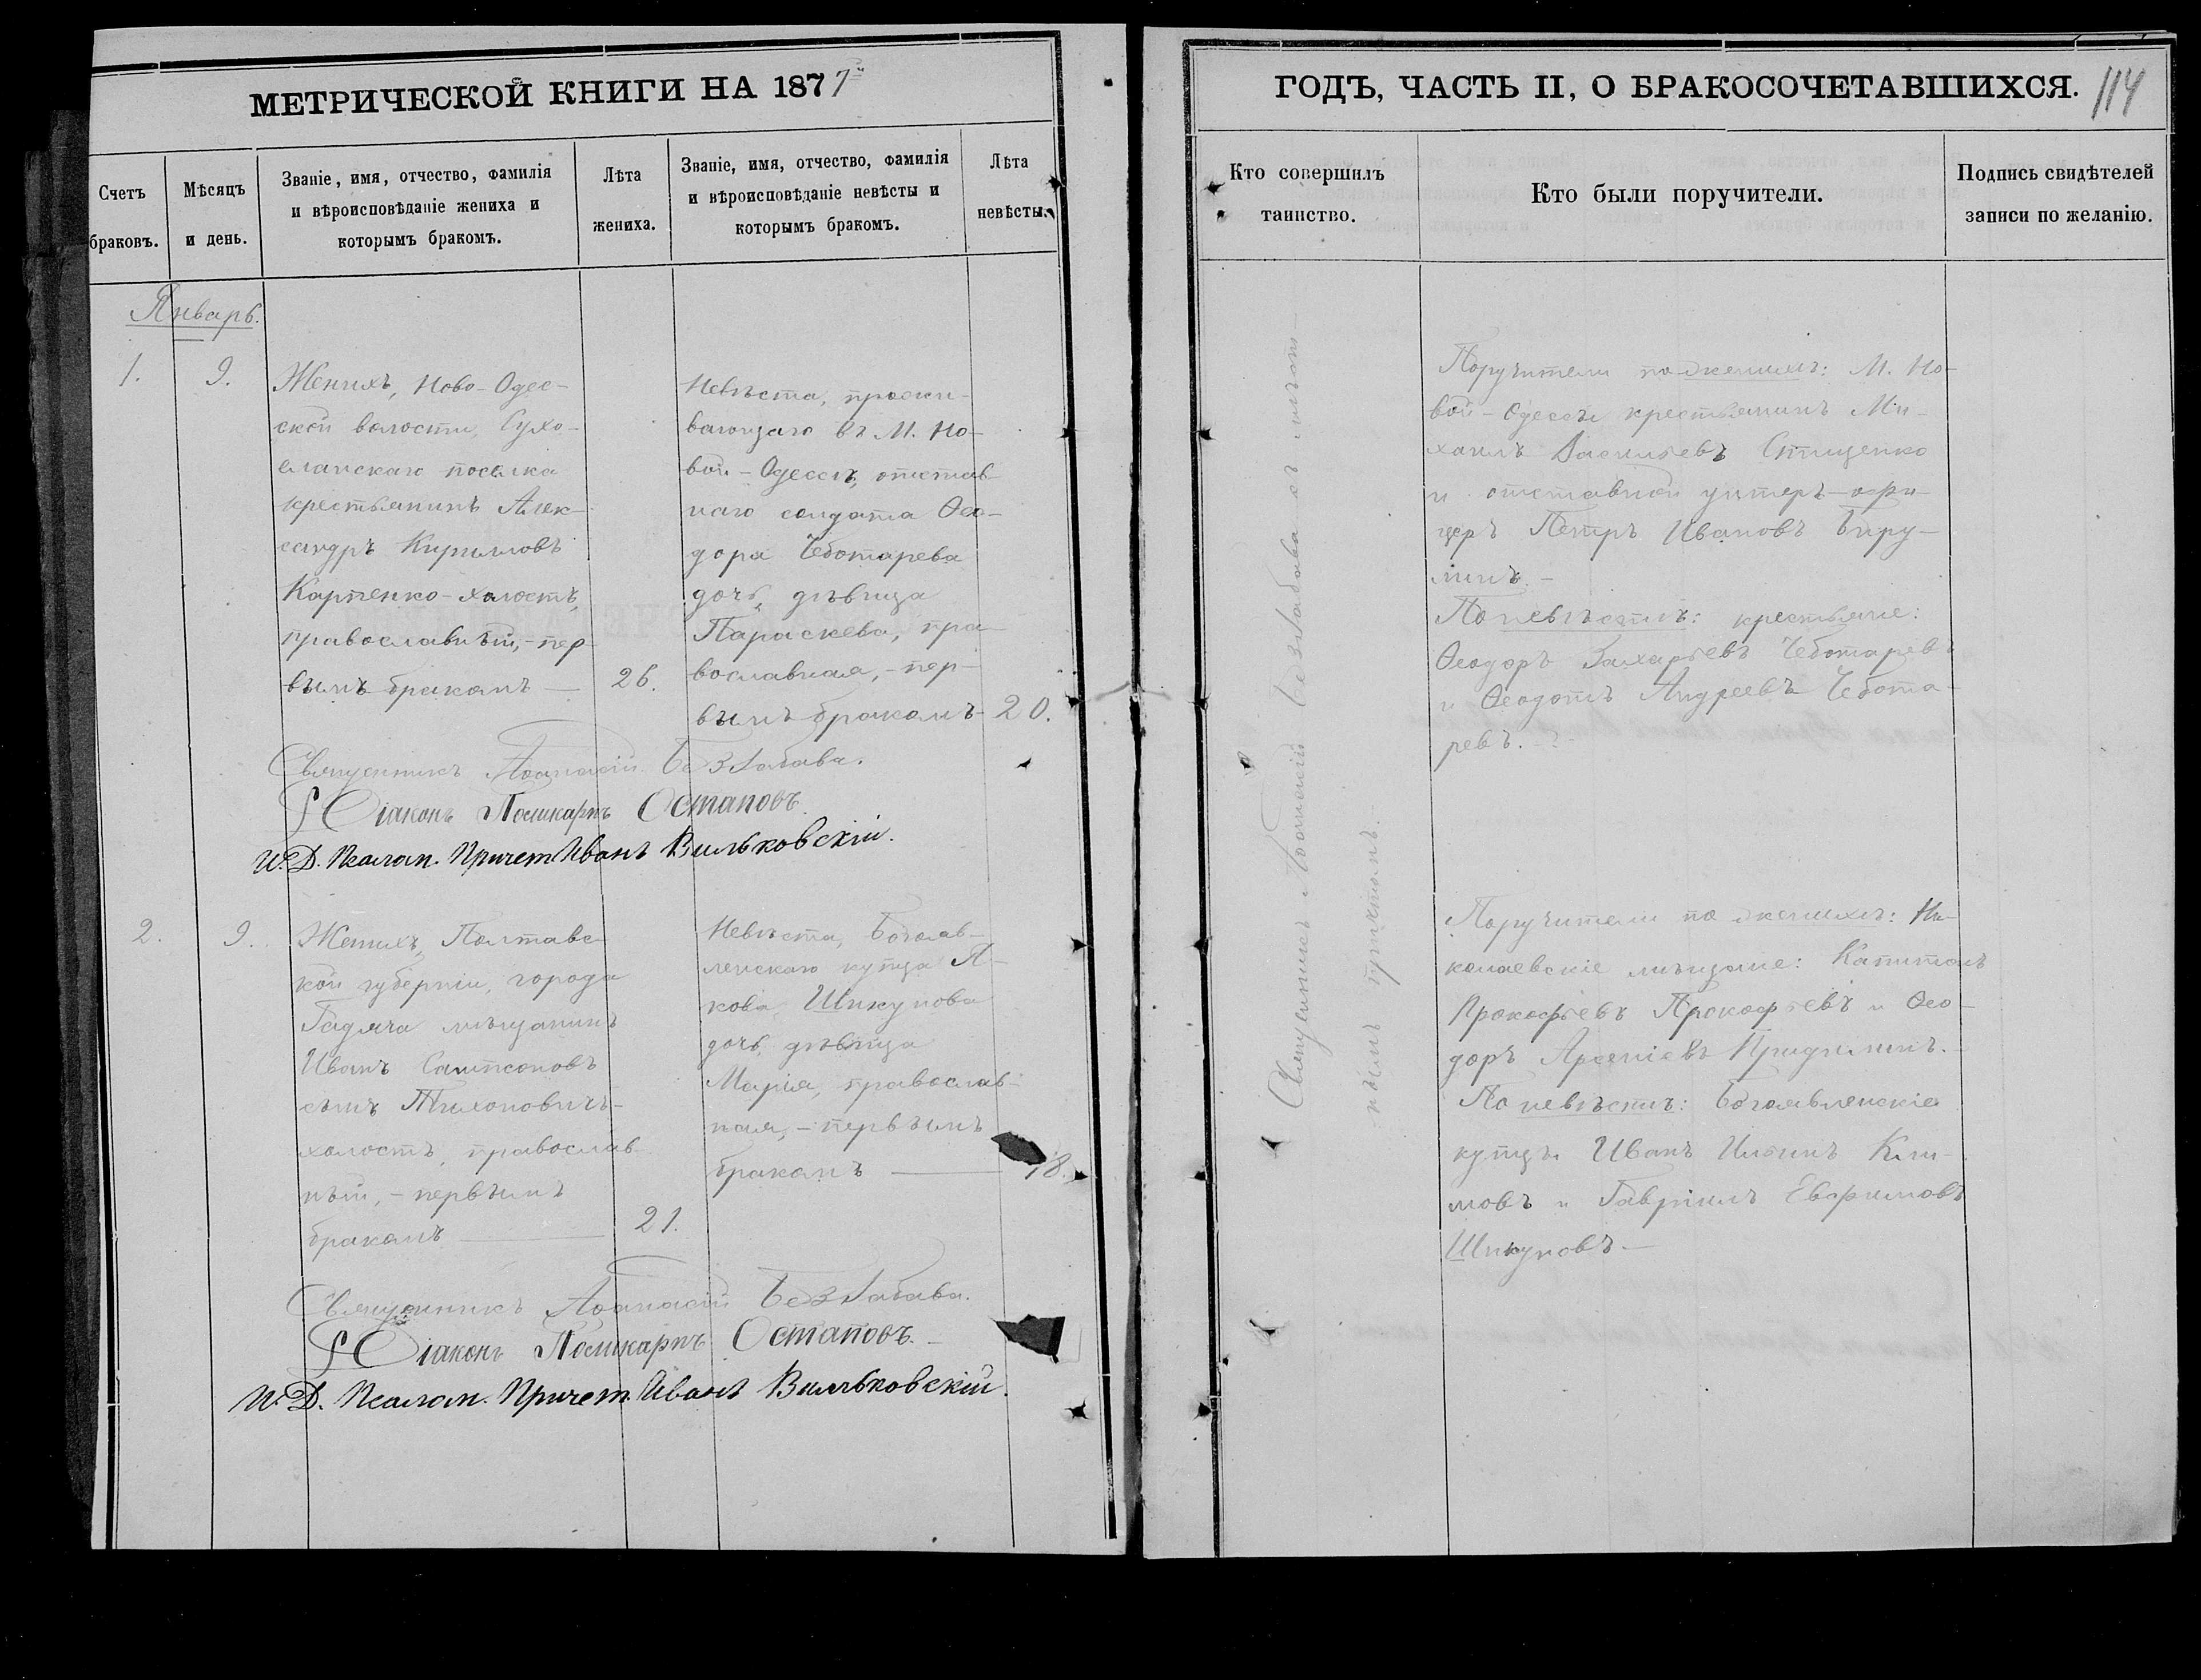 МЕТРИЧЕСКОЙ КНИГИ НА 1877й
Счетъ браковъ.
Мѣсяцъ и день.
Званіе, имя, отчество, фамилія
и вѣроисповѣданіе жениха и
которымъ бракомъ.
Лѣта жениха.
Званіе, имя, отчество, фамилія
и вѣроисповѣданіе невѣсты и
которымъ бракомъ.
Лѣта невѣсты.
Январь.
1.
9.
Женихъ, Ново-Одес-
ской волости, Сухо-
еланскаго поселка
крестьянинъ Алек-
сандръ Кирилловъ
Карпенко-холостъ,
православный,-пер-
вымъ бракомъ —
26.
Невѣста, прожи-
вающаго въ М. Но-
вой-Одессѣ, отстав-
наго солдата Ѳео-
дора Чеботарева
дочь, дѣвица
Параскева, пра-
вославная,-пер-
вымъ бракомъ-
20.
Священникъ Аѳанасій Беззабава.
Діаконъ Поликарпъ Остаповъ.
И. Д. Псалом. Причет Иванъ Вильковскій.
2.
9.
Женихъ, Полтавс-
кой губерніи, города
Гадяча мѣщанинъ
Иванъ Сампсоновъ
сынъ Тихоновичъ-
холостъ, православ-
ный,-первымъ
бракомъ —
21.
Невѣста, Богояв-
ленскаго купца Я-
кова Шикунова
дочь, дѣвица
Марія, православ-
ная,-первымъ
бракомъ —
18.
Священникъ Аѳанасій Беззабава.
Діаконъ Поликарпъ Остаповъ.-
И. Д. Псалом. Причет. Иванъ Вильковскій.
ГОДЪ, ЧАСТЬ II, О БРАКОСОЧЕТАВШИХСЯ.
114
Кто совершилъ
таинство.
Кто были поручители.
Подпись свидѣтелей
записи по желанію.
Священникъ Аѳанасій Беззабава съ
Поручители по женихѣ: М. Но-
вой-Одессы крестьянинъ Ми-
хаилъ Васильевъ Стищенко
и отставной унтеръ-офи-
церъ Петръ Ивановъ Биру-
линъ.-
По невѣстѣ: крестьяне:
Ѳеодоръ Захарьевъ Чеботаревъ
и Ѳеодотъ Андреевъ Чебота-
ревъ.-
Поручители по женихѣ: Ни-
колаевскіе мѣщане: Капитонъ
Прокофьевъ Прокофьевъ и Ѳео-
доръ Арсеніевъ
По невѣстѣ: Богоявленскіе
купцы Иванъ Ильинъ Кли-
мовъ и Гавріилъ Евфимовъ
Шикуновъ.-